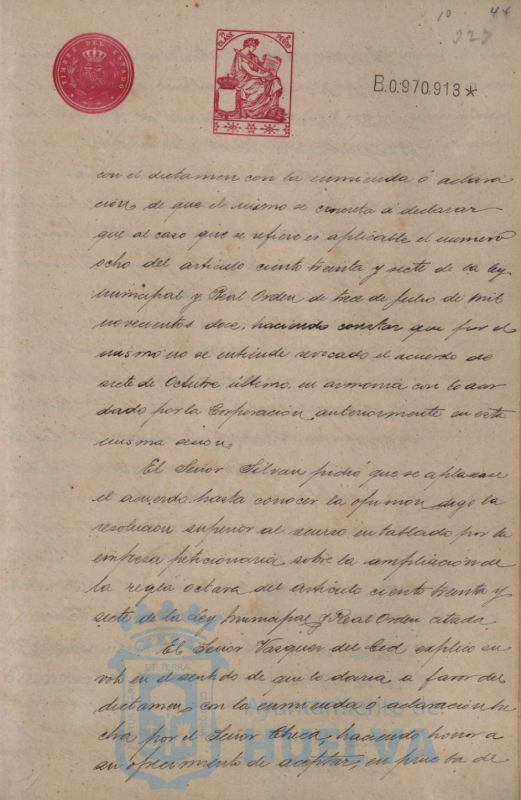 10 44
327
TIMBRE DEL ESTADO
CLASE
B.0.970.913*
con el dictamen con la enmienda ó aclara
ción de que el mismo se concreta á declarar
que al caso que se refiere es aplicable el numero
ocho del artículo ciento treinta y siete de la Ley
Municipal y Real Orden de trece de Julio de mil
novecientos doce, haciendo constar que por el
mismo no se entiende revocado el acuerdo de
siete de Octubre último, en armonia con lo acor
dado por la Corporación anteriormente en esta
misma sesion.
El Señor Silvan pidió que se aplazase
el acuerdo hasta conocer la opinion digo la
resolucion superior al recurso entablado por la
empresa peticionaria sobre la ampliación de
la regla octava del artículo ciento treinta y
siete de la Ley Municipal y Real Orden citada
El Señor Vazquez del Cid explicó su
voto en el sentido de que lo daria a favor del
dictamen con la enmienda ó aclaración he
cha por el Señor Checa, haciendo honor a
su ofrecimiento de aceptar, en prueba de
Ayuntamiento de
HUELVA